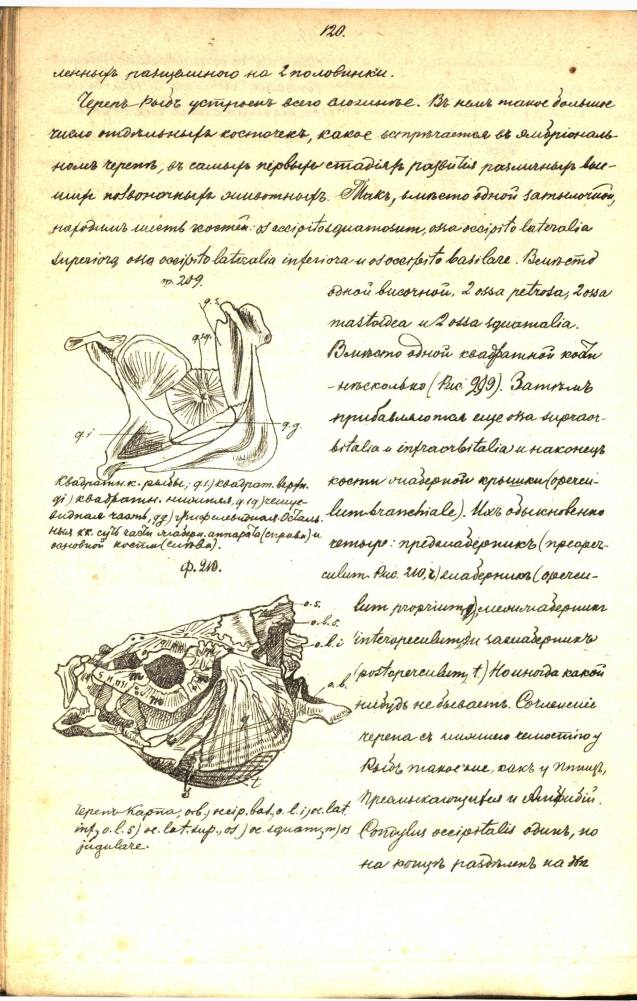 120.
ленныхъ разщепленного на 2 половинки.
Черепъ Рыбъ устроенъ всего сложнѣе. Въ немъ такое большое
число отдѣльныхъ косточекъ, какое встрѣчается въ эмбріональ-
номъ черепѣ, въ самыхъ первыхъ стадіяхъ развитія различныхъ выс-
шихъ позвоночныхъ животныхъ. Такъ, вмѣсто одной затылочной,
находимъ шесть костей: os occipitosquamosum, ossa occipito lateralia
superiora, ossa occipito lateralia inferiora и os occipito basilare. Вмѣсто
одной височной, 2 ossa petrosa, 2 ossa
mastoidea и 2 ossa squamalia.
Вмѣсто одной квадратной кости
- нѣсколько (Рис. 209). Затѣмъ
прибавляются еще ossa supraor-
bitalia и infraorbitalia и наконецъ
кости жаберной крышки (opercu-
lum branchiale). Ихъ обыкновенно
четыре: преджаберникъ (preoper-
culum Рис. 210, r) жаберникъ (opercu-
lum proprium, q), межжаберникъ
interoperculum, и зажаберникъ
(postoperculum, t.) Но иногда какой
нибудь не бываетъ. Сочлененіе
черепа съ нижнею челюстію у
Рыбъ такое же, какъ у Птицъ,
Пресмыкающихся и Амфибій.
Condylus occipitalis одинъ, но
на концѣ раздѣленъ на двѣ
ф. 209.
q.s.
q.sq.
q.i
q.g.
Квадратн. к. рыбы; q.s.) квадрат. верхн.
qi) квадратн. нижняя, q.sq) чешуе-
видная часть, qg) Остальн-
ныя кк. суть части жаберн. аппарата (справа) и
основной кости (слѣва).
ф. 210.
o.s.
o.l.s.
o.l.i
o.b.
m
q
t
s
Черепъ Карпа, ob.) occip. bas., o.l.i) oc. lat.
inf., o.l.s) oc. lat. sup., os) oc squam., m) os
jugulare.